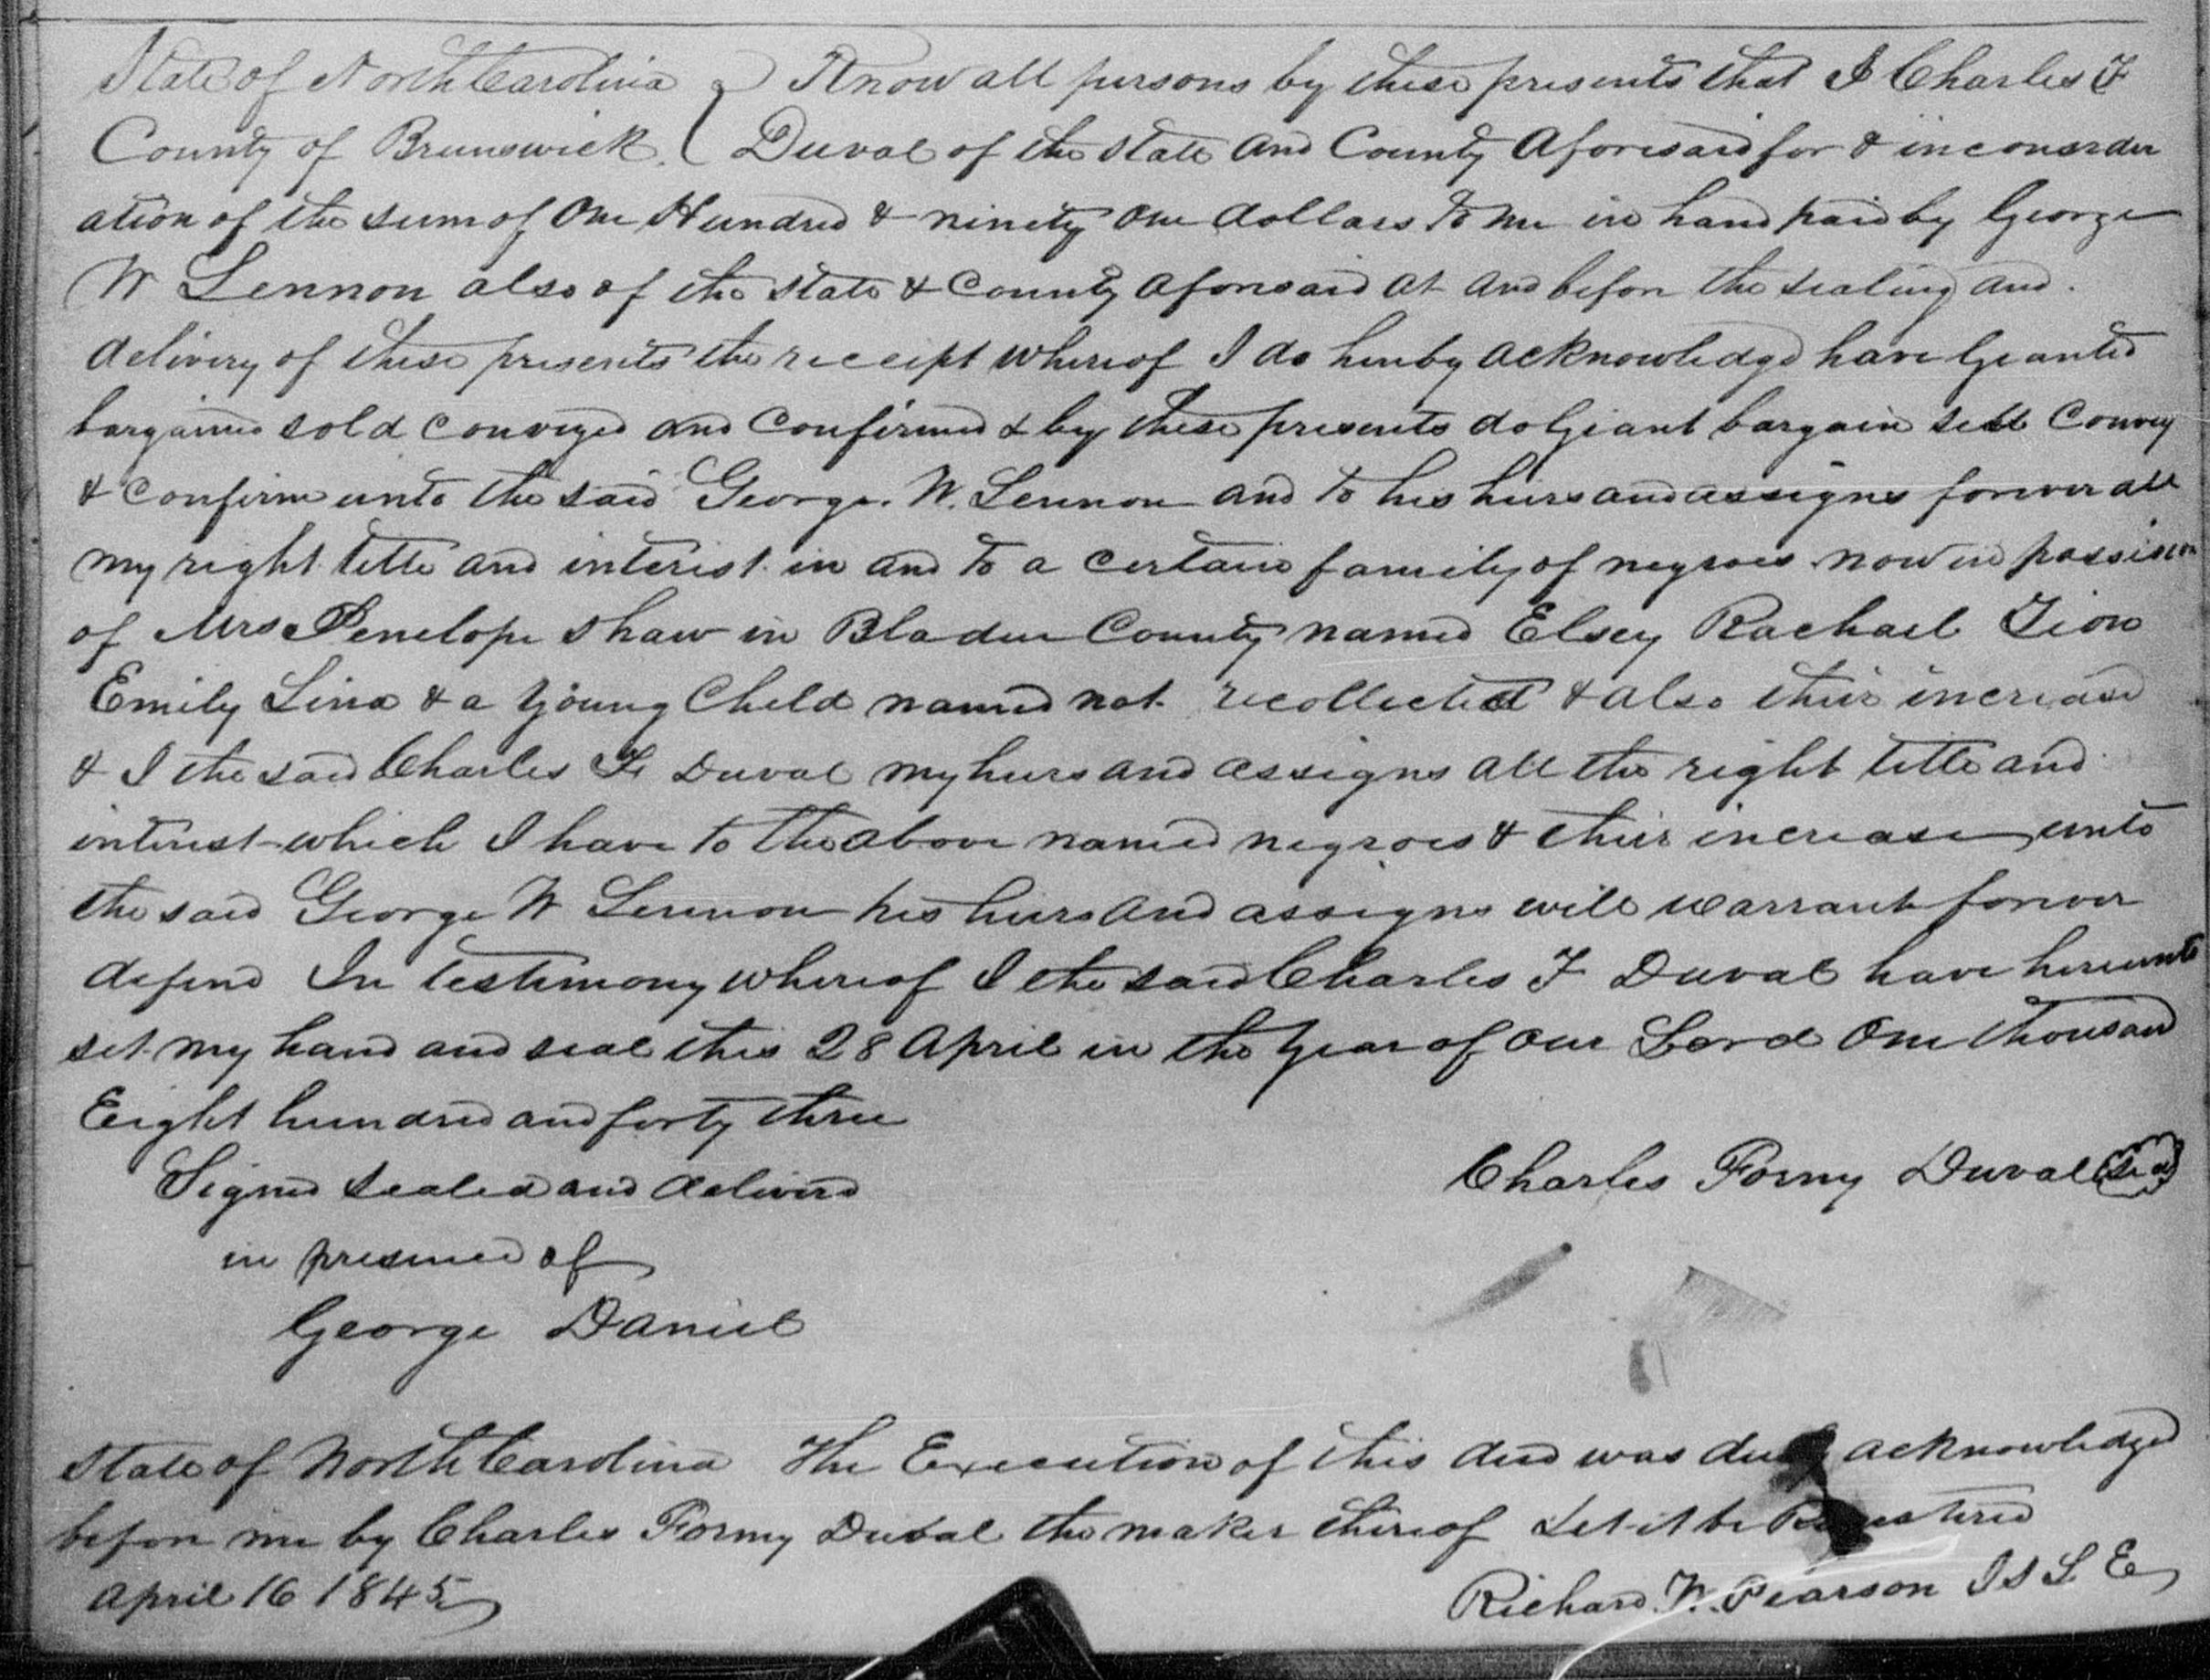 State of North Carolina } Know all persons by these presents that I Charles F
County of Brunswick. { Duval of the State and County Aforesaid for & in consider
ation of the sum of One Hundred & ninety One dollars to me in hand paid by George
W Lennon also of the State & County Aforesaid at and before the sealing and
delivery of these presents the receipt whereof I do hereby acknowledge have Granted
bargained sold conveyed and confirmed & by these presents do Grant bargain sell Convey
& Confirm unto the said George. W. Lennon and to his heirs and assigns forever all
my right title and interest in and to a certain family of negroes now in possession
of Mrs Penelope Shaw in Bladen County named Elsey Rachael
Emily Lina & a young Child named not recollected & also their increase
& I the said Charles F Duval my heirs and assigns all the right title and
interest which I have to the above named negroes & their increase unto
the said George W Lennon his heirs and assigns will warrant forever
defend In testimony whereof I the said Charles F Duval have hereunto
set my hand and seal this 28 April in the Year of our Lord One thousand
Eight hundred and forty three
Signed sealed and delivered Charles Formy Duval (Seal)
in presence of
George Daniel
State of North Carolina The Execution of this deed was duly acknowledged
before me by Charles Formy Duval the maker thereof Let it be Registered
April 16 1845 Richard. W. Pearson J S L E